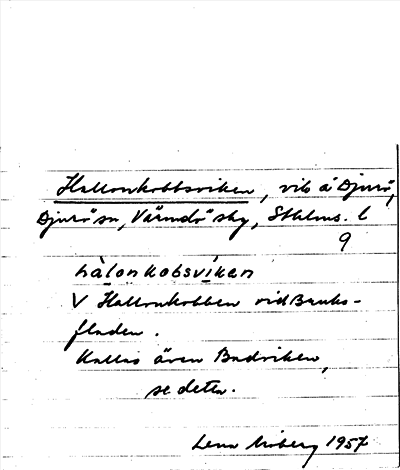 Hallonkobbsviken, vik å Djurö,
Djurö sn, Värmdö sky, Sthlms. l
9
hàlonkobsvíken
V Hallonkobben vid Banks-
fladen.
Kallas även Badviken,
se detta.
Lena Moberg 1957